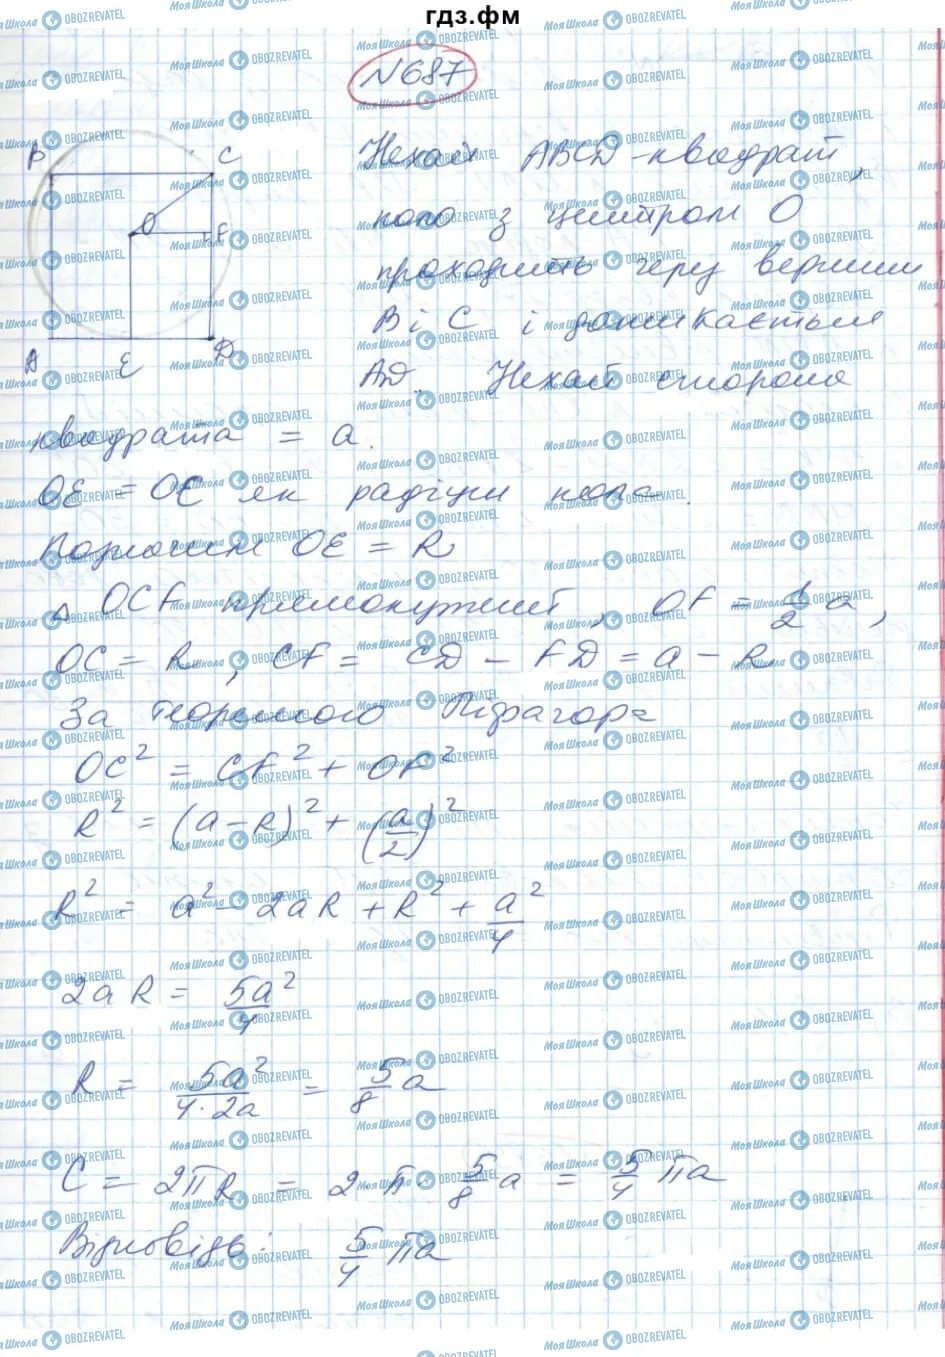 гдз.фм
№687
B C
O F
A E D
Нехай ABCD - квадрат,
коло з центром O
проходить через вершини
B і C і дотикається
AD. Нехай сторона
квадрата = a.
OE = OC як радіуси кола.
Позначим OE = R
△ OCF прямокутний, OF = 1/2 a,
OC = R, CF = CD - FD = a - R
За теоремою Піфагора
OC² = CF² + OF²
R² = (a - R)² + (a/2)²
R² = a² - 2aR + R² + a²/4
2aR = 5a²/4
R = 5a²/4·2a = 5/8 a
C = 2πR = 2 π 5/8 a = 5/4 πa
Відповідь: 5/4 πa
МояШкола OBOZREVATEL